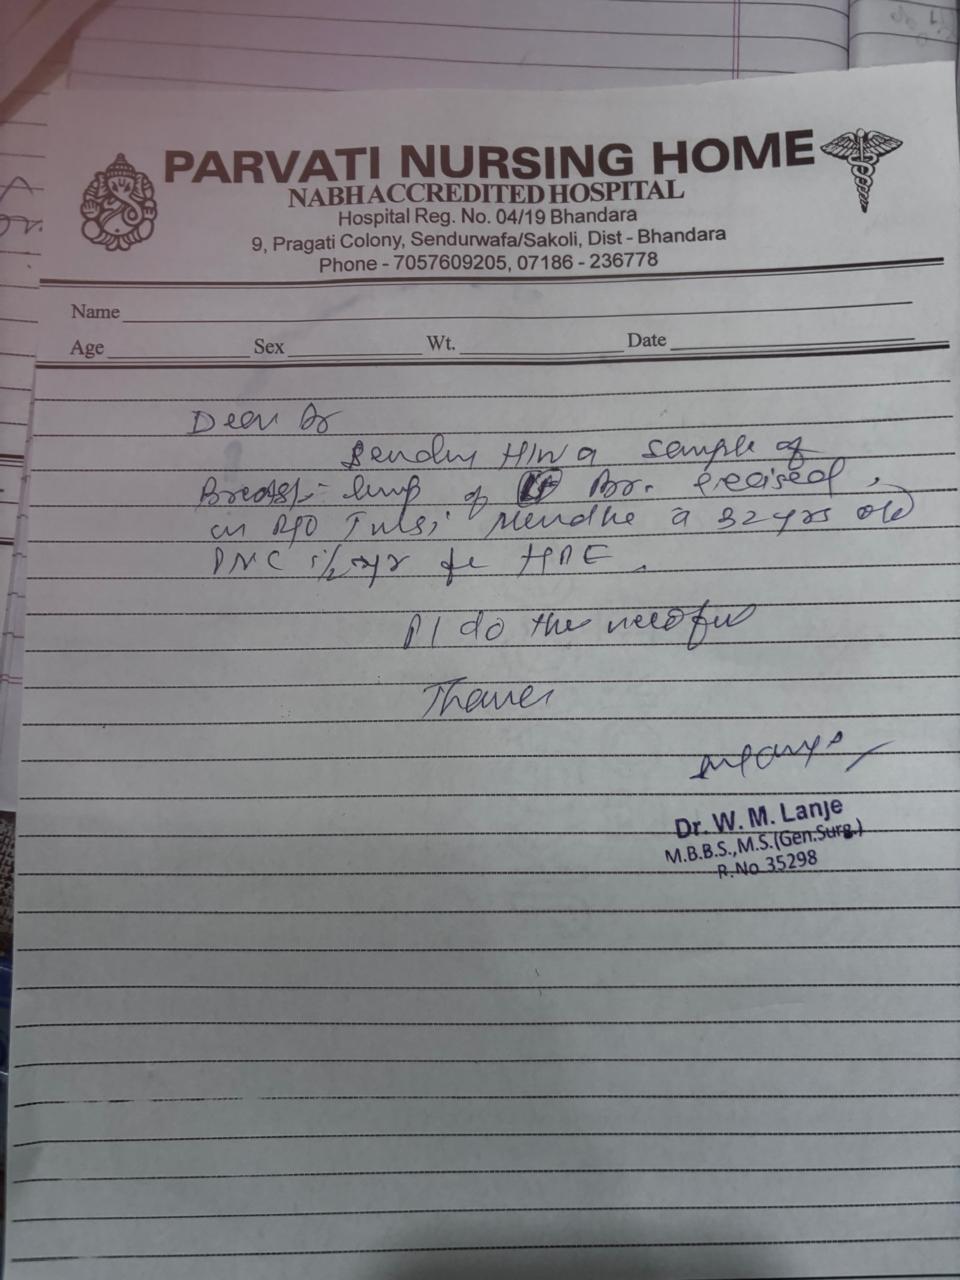 PARVATI NURSING HOME
NABH ACCREDITED HOSPITAL
Hospital Reg. No. 04/19 Bhandara
9, Pragati Colony, Sendurwafa/Sakoli, Dist - Bhandara
Phone - 7057609205, 07186 - 236778
Name
Age Sex Wt. Date
Dear Dr
Sending H/W a sample of
Breast lump of Br. Excised,
on Tulsi Mendhe a 32 yrs old
PNC for HPE.
Pl do the needful
Thanks
Dr. W. M. Lanje
M.B.B.S.,M.S.(Gen.Surg.)
R.No 35298